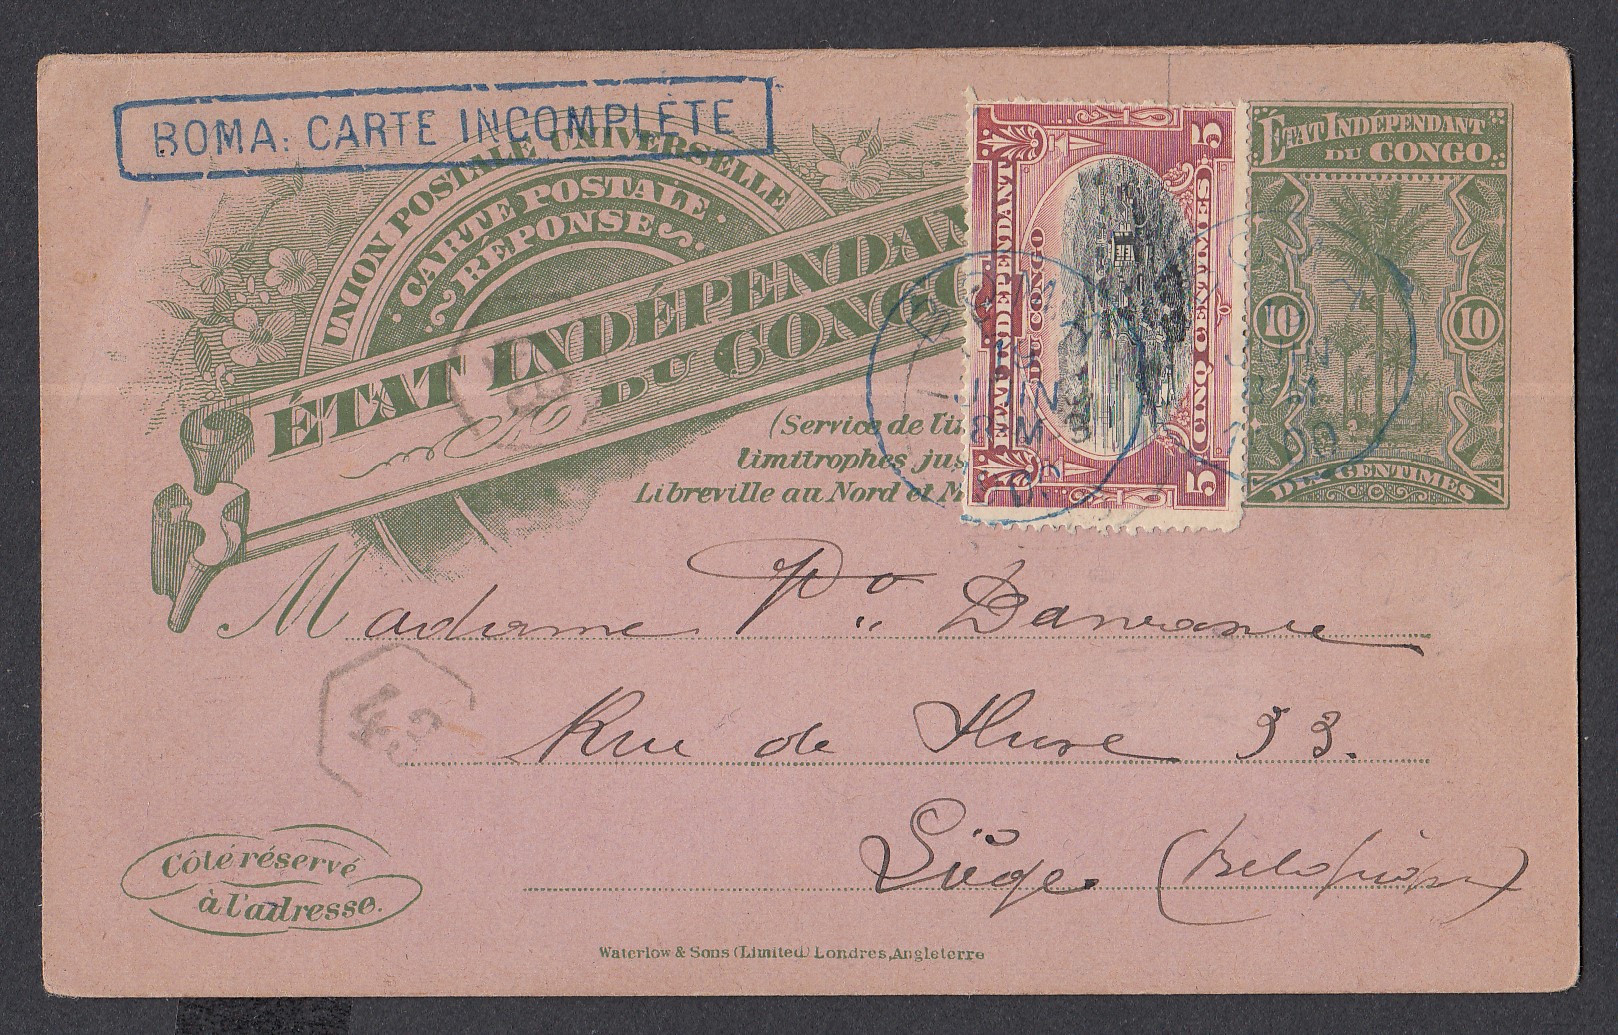 BOMA: CARTE INCOMPLÈTE
UNION POSTALE UNIVERSELLE
CARTE POSTALE
RÉPONSE
ÉTAT INDÉPENDAN
DU CONGO
(Service de l'in
limitrophes jus
Libreville au Nord et M
5 5
ÉTAT INDÉPENDANT
DU CONGO
CINQ CENTIMES
ÉTAT INDÉPENDANT
DU CONGO
10 10
DIX CENTIMES
BOMA
16
JUIN
8-M
JUIN
8-M
00
Madame
Rue de 33.
Liège (Belgique)
Côté réservé
à l'adresse.
Waterlow & Sons (Limited) Londres, Angleterre